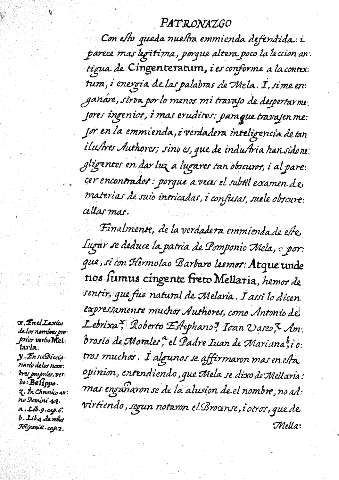 PATRONAZGO
Con esto queda nuestra emmienda defendida: i
parece mas legitima, porque altera poco la leccion an-
tigua de Cingenteratum, i es conforme a la contex-
tum, i energia de las palabras de Mela. I, si me en-
gañare, sirva por lo menos mi travajo de despertar me-
jores ingenios, i mas eruditos: para que travajen me-
jor en la emmienda, i verdadera inteligencia de tan
ilustres Authores; sino es, que de industria han sido ne-
gligentes en dar luz a lugares tan obscuros, i al pare-
cer encontrados: porque a veces el subtil examen de
materias de suio intricadas, i confusas, suele obscure-
cellas mas.
Finalmente, de la verdadera emmienda de este
lugar se deduce la patria de Pomponio Mela, por-
que, si con Hermolao Barbaro leemos: Atque unde
nos sumus cingente freto Mellaria, hemos de
sentir, que fue natural de Melaria. I assi lo dicen
expressamente muchos Authores, como Antonio de
Lebrixa, Roberto Estephano, Ioan Vaseo, Am-
brosio de Morales, el Padre Iuan de Mariana, i o-
tros muchos. I algunos se affirmaron mas en esta
opinion, entendiendo, que Mela se dixo de Mellaria:
mas engañaron se de la alusion de el nombre, no ad-
virtiendo, segun notaron el Brocense, i otros, que de
Mella:
x. En el Lexico
de los nombres pro-
prios verbo Mel-
laria.
y. En su Diccio-
nario de los nom-
bres proprios, ver-
bo: Belippo.
z. In Chronico an-
no Domini
a. Lib. 9. cap. 6.
b. Lib. 4. de rebus
Hispaniæ. cap. 2.